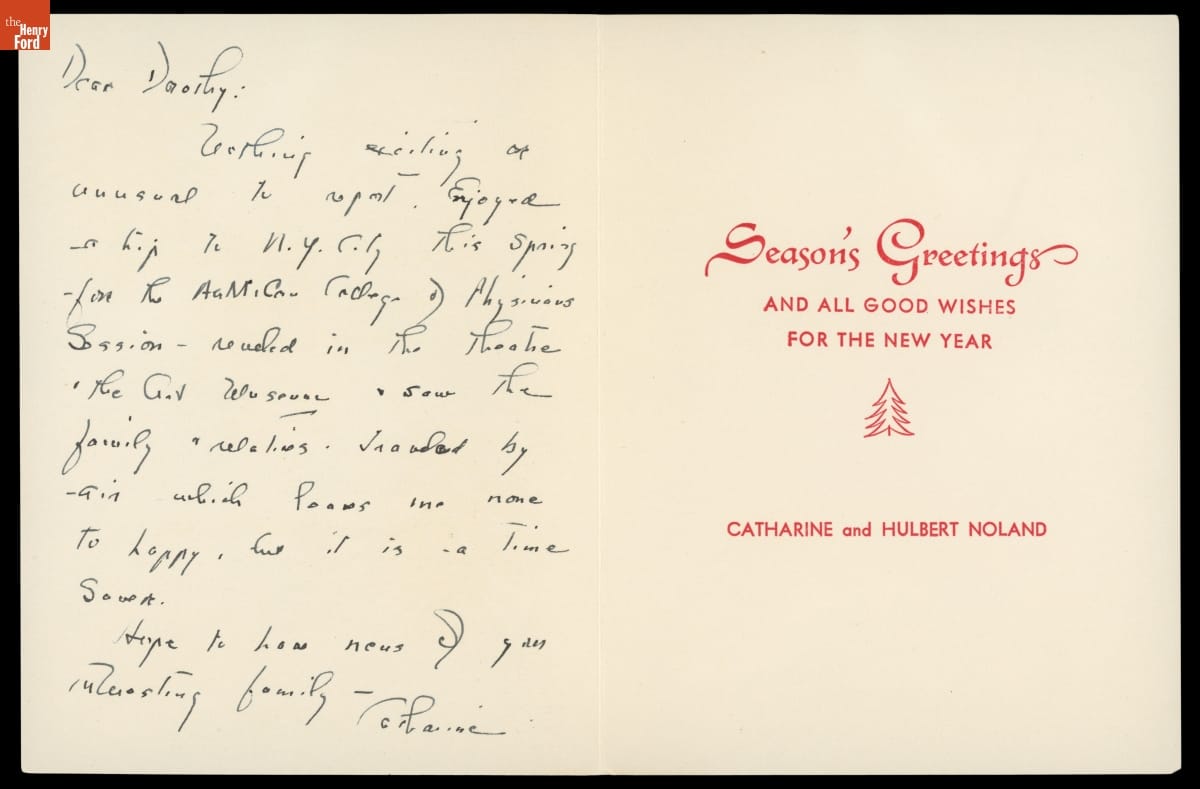 the
Henry
Ford
Dear Dorothy:
Nothing exciting or
unusual to report. Enjoyed
a trip to N.Y. City this Spring
for the American College of Physicians
Session - in the theatre
the Art Museum & saw the
family relatives. Traveled by
air which leaves me none
to happy, but it is a time
Saver.
Hope to hear news of your
interesting family -
Catharine
Season's Greetings
AND ALL GOOD WISHES
FOR THE NEW YEAR
CATHARINE and HULBERT NOLAND